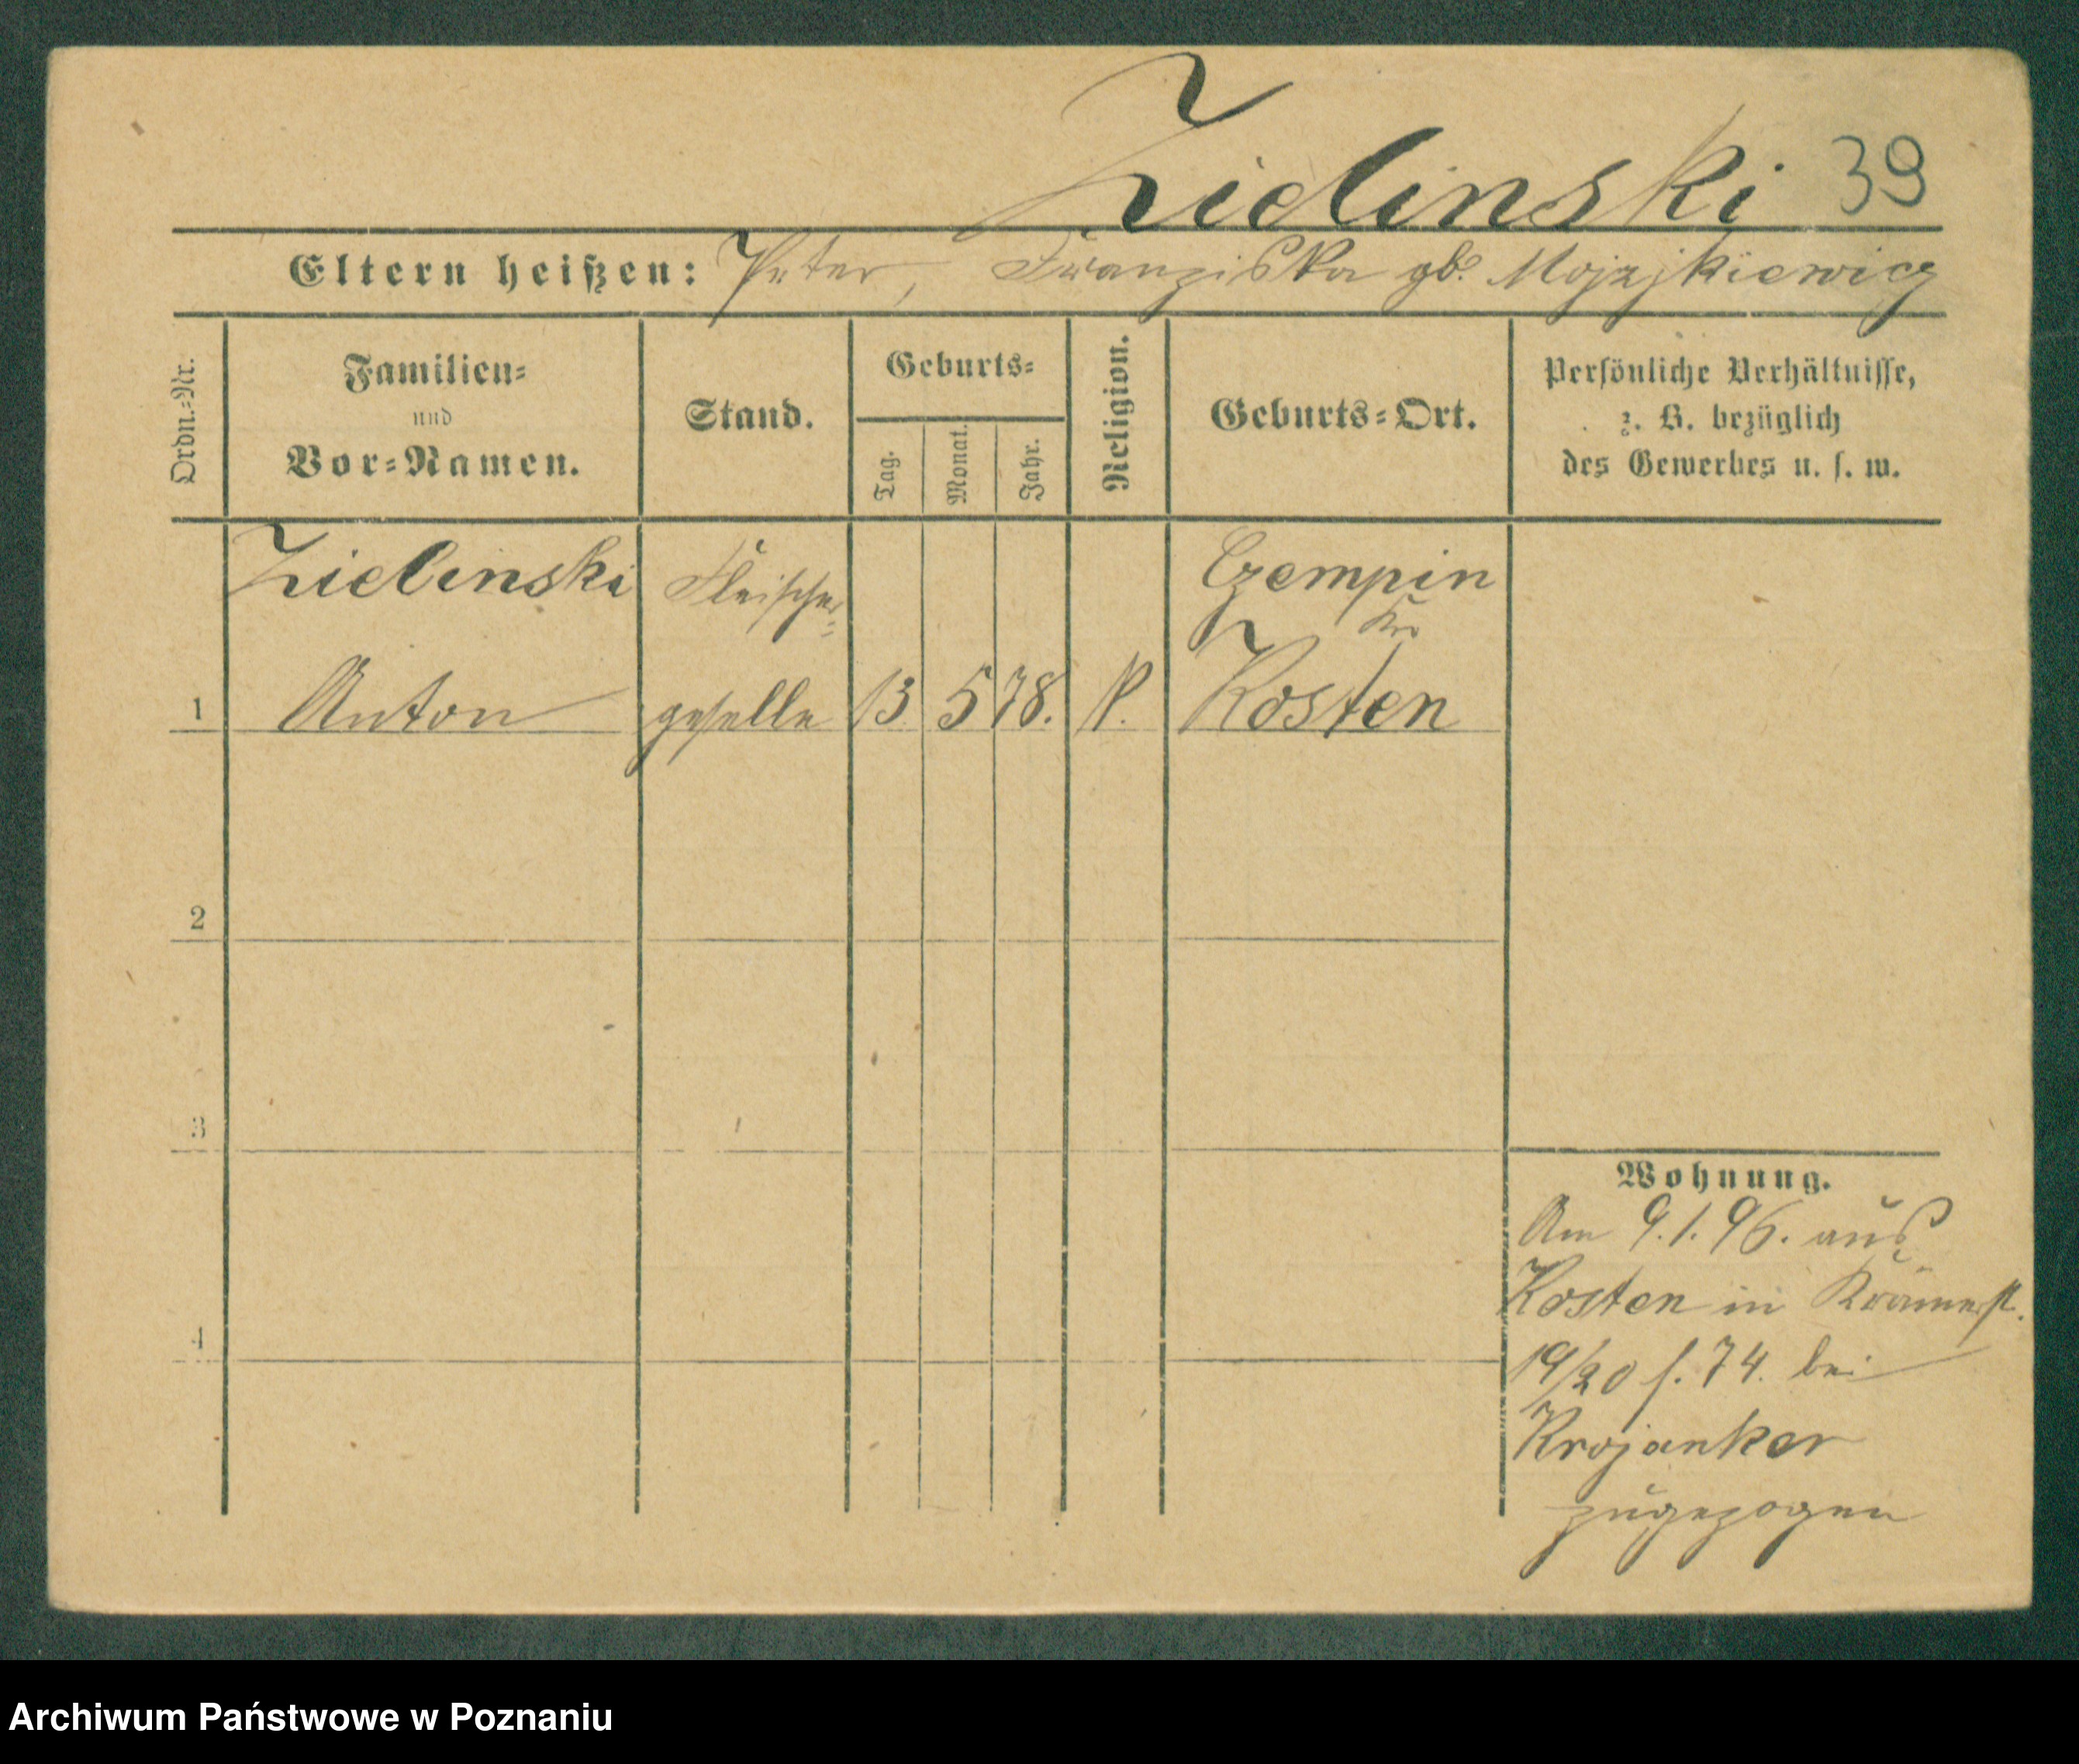 Zielinski 39
Eltern heißen: Peter, Franziska gb.
Ordn.-Nr.
Familien-
und
Vor-Namen.
Stand.
Geburts-
Tag.
Monat.
Jahr.
Religion.
Geburts-Ort.
Persönliche Verhältnisse,
z. B. bezüglich
des Gewerbes u. s. w.
Zielinski Fleischer- Czempin
Krs
1 Anton geselle 13 5 78. K. Kosten
2
3
4
Wohnung.
Am 9.1.96. aus
Kosten in Krämerst.
19/20 f. 74. bei
Krojanker
zugezogen
Archiwum Państwowe w Poznaniu